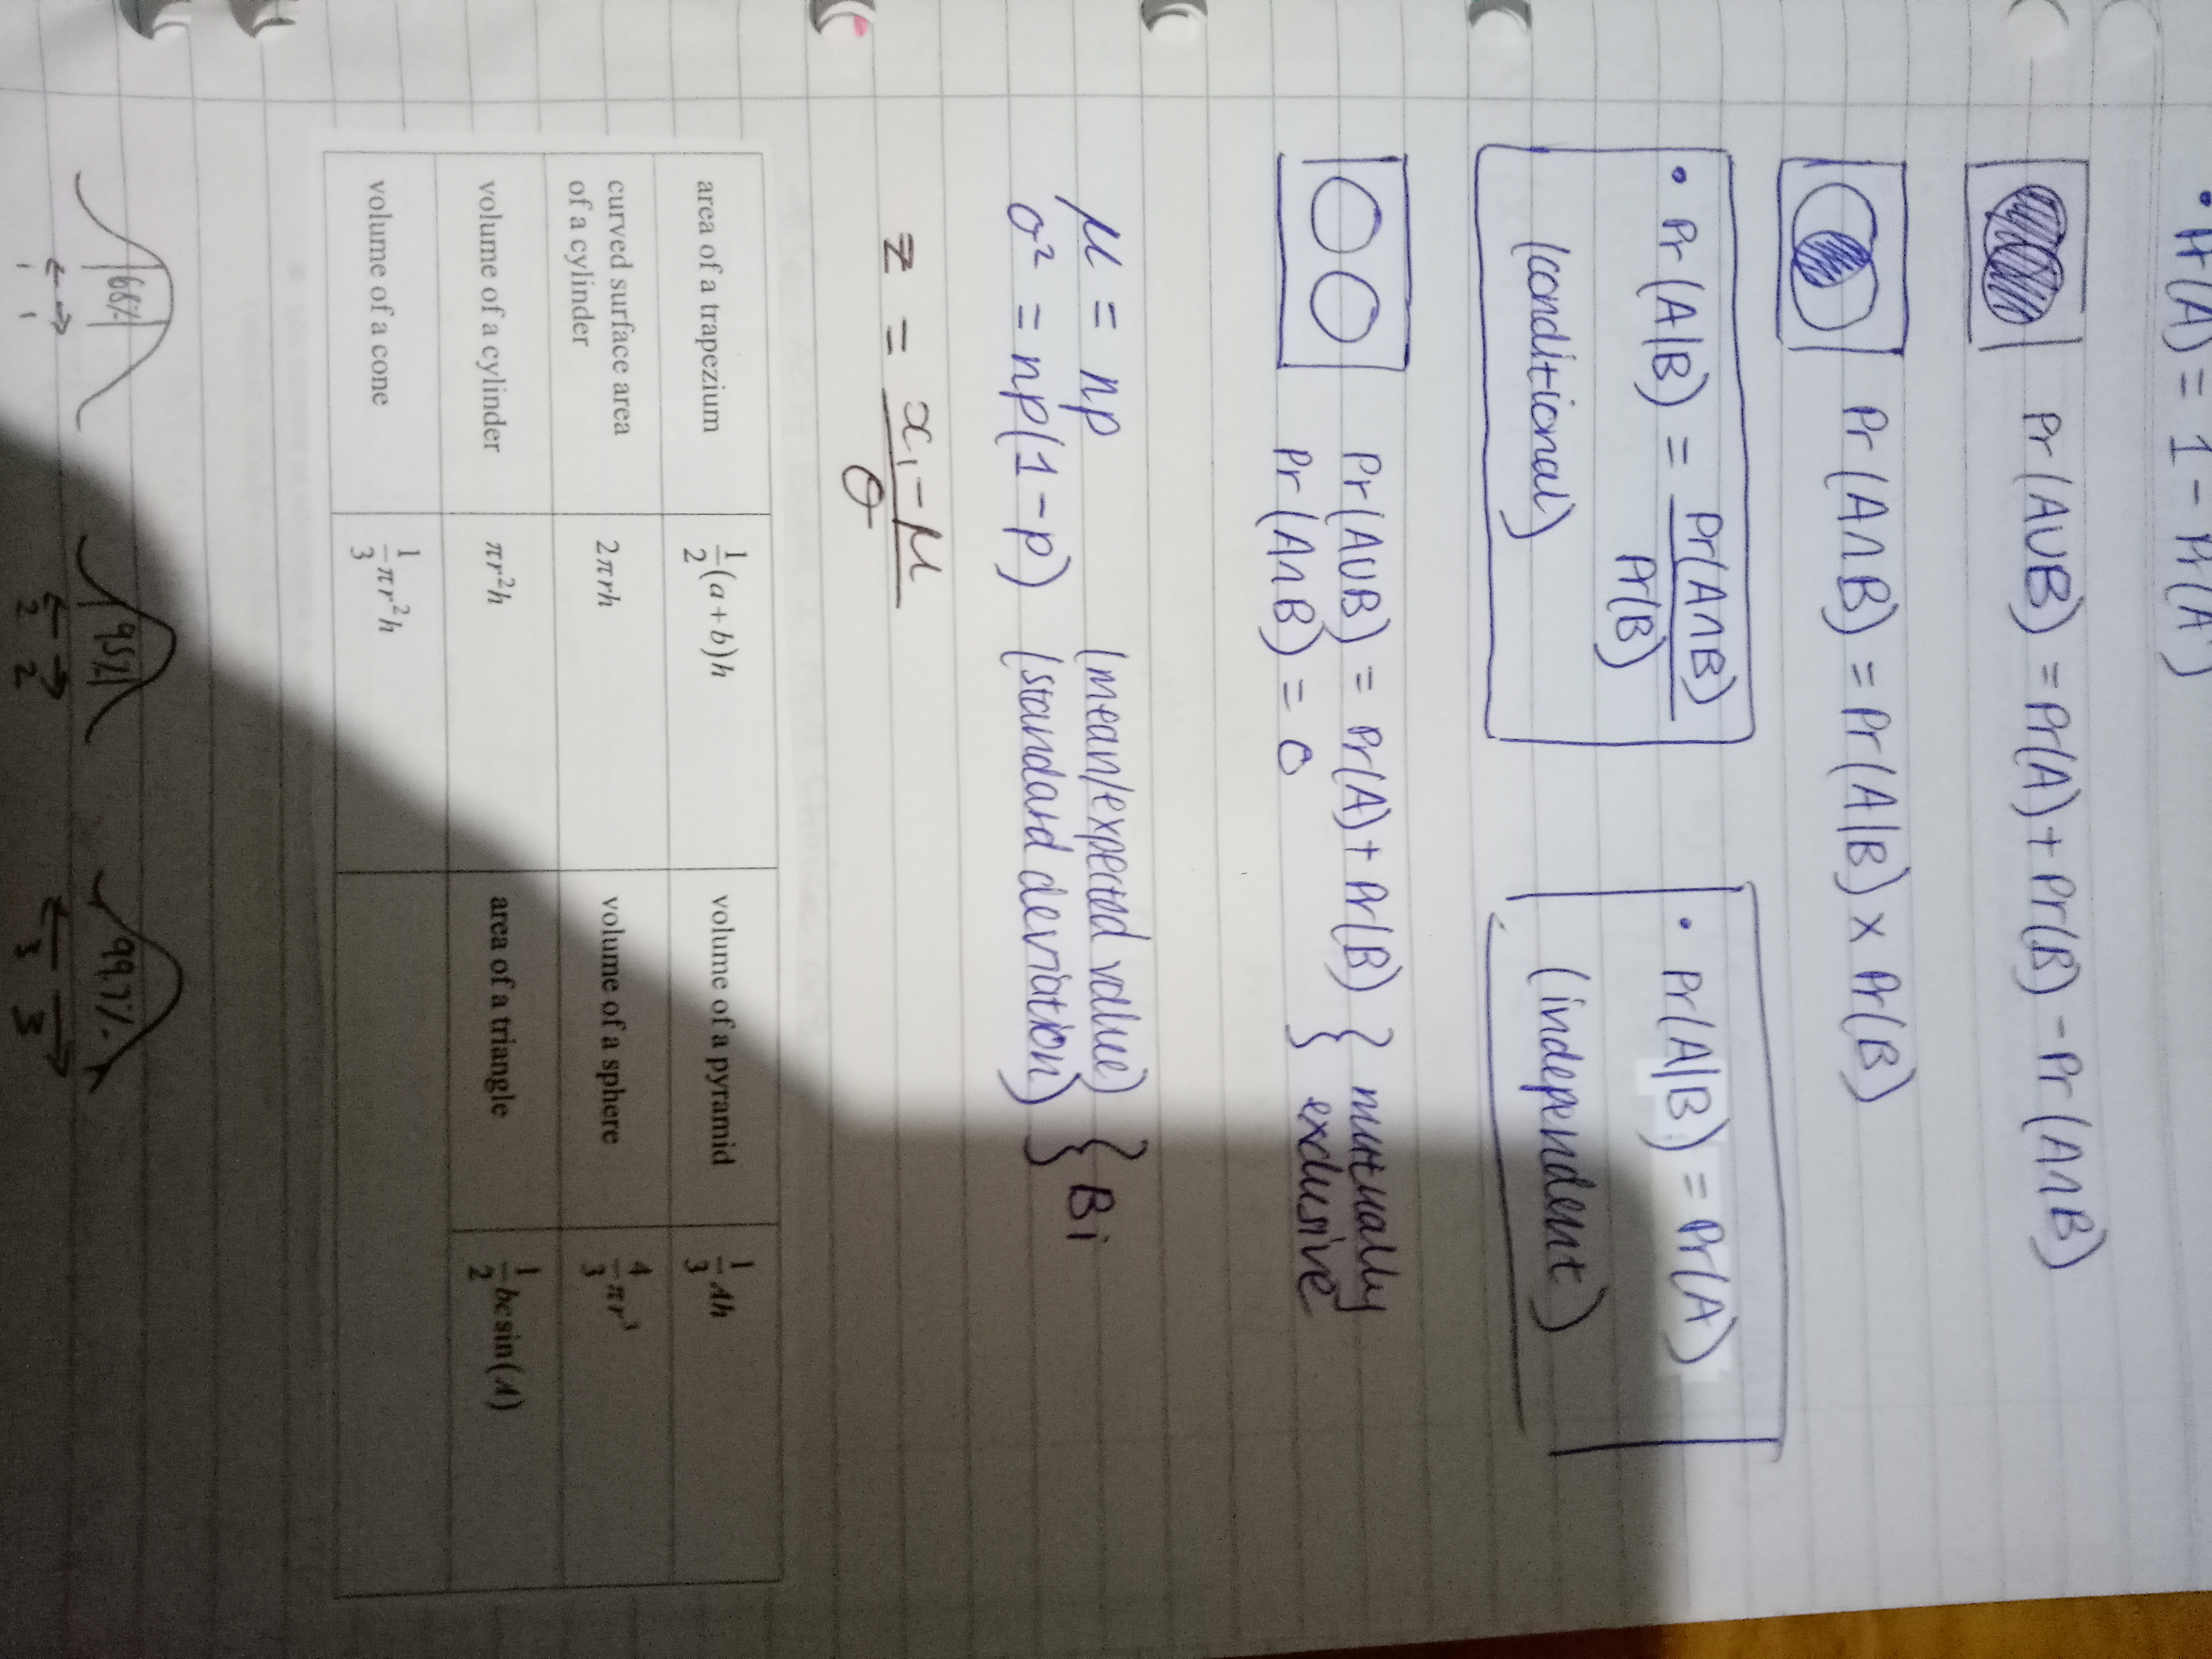 • Pr(A) = 1 - Pr(A')
Pr(A∪B) = Pr(A) + Pr(B) - Pr(A∩B)
Pr(A∩B) = Pr(A|B) × Pr(B)
• Pr(A|B) = Pr(A∩B) / Pr(B)
(conditional)
• Pr(A|B) = Pr(A)
(independent)
Pr(A∪B) = Pr(A) + Pr(B) } mutually
Pr(A∩B) = 0 } exclusive
μ = np (mean/expected value) } Bi
σ² = np(1-p) (standard deviation) }
z = x₁ - μ / σ
area of a trapezium ½(a+b)h volume of a pyramid ⅓Ah
curved surface area of a cylinder 2πrh volume of a sphere 4/3 πr³
volume of a cylinder πr²h area of a triangle ½bc sin(A)
volume of a cone ⅓πr²h
68% 95% 99.7%
← → ← → ← →
1 1 2 2 3 3